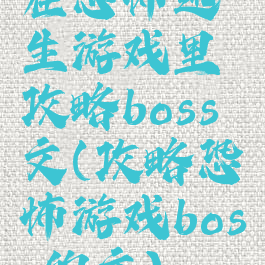 在恐怖逃
生游戏里
攻略boss
文(攻略恐
怖游戏bos